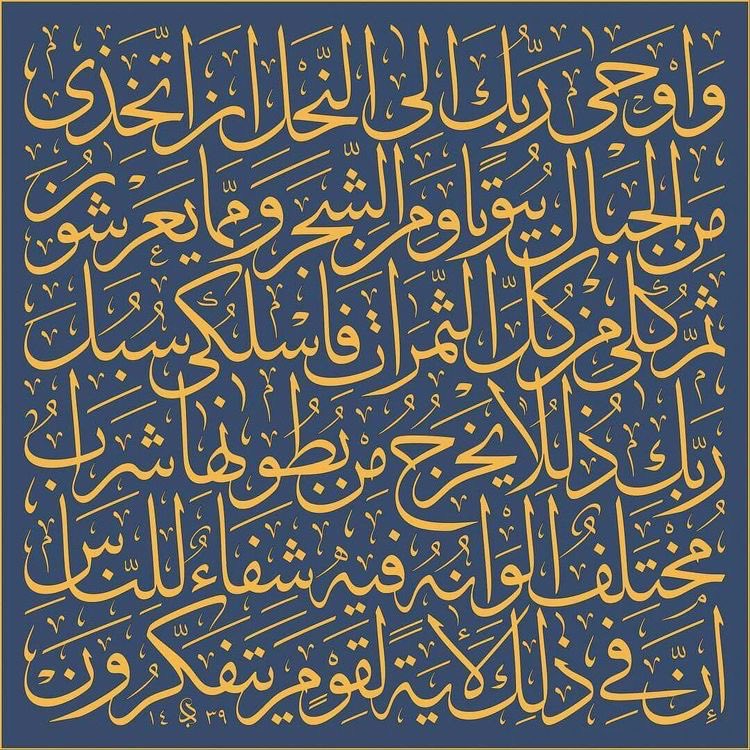 وَاَوْحٰى رَبُّكَ اِلَى النَّحْلِ اَنِ اتَّخِذٖى
مِنَ الْجِبَالِ بُيُوتًا وَمِنَ الشَّجَرِ وَمِمَّا يَعْرِشُونَ
ثُمَّ كُلٖى مِنْ كُلِّ الثَّمَرَاتِ فَاسْلُكٖى سُبُلَ
رَبِّكِ ذُلُلًا يَخْرُجُ مِنْ بُطُونِهَا شَرَابٌ
مُخْتَلِفٌ اَلْوَانُهُ فٖيهِ شِفَاءٌ لِلنَّاسِ
اِنَّ فٖى ذٰلِكَ لَاٰيَةً لِقَوْمٍ يَتَفَكَّرُونَ
١٤٣٩